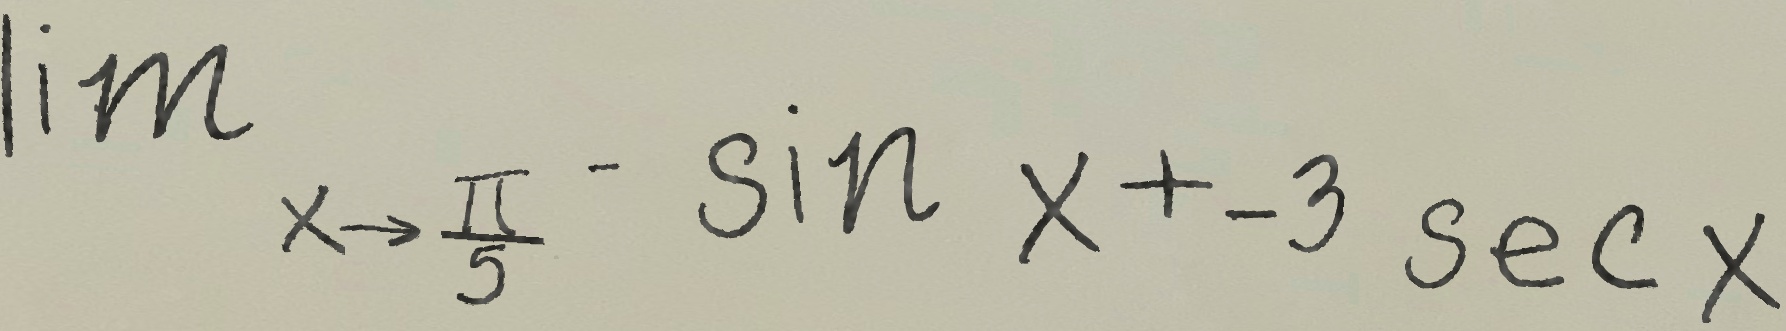 lim x→π/5⁻ sin x + -3 sec x